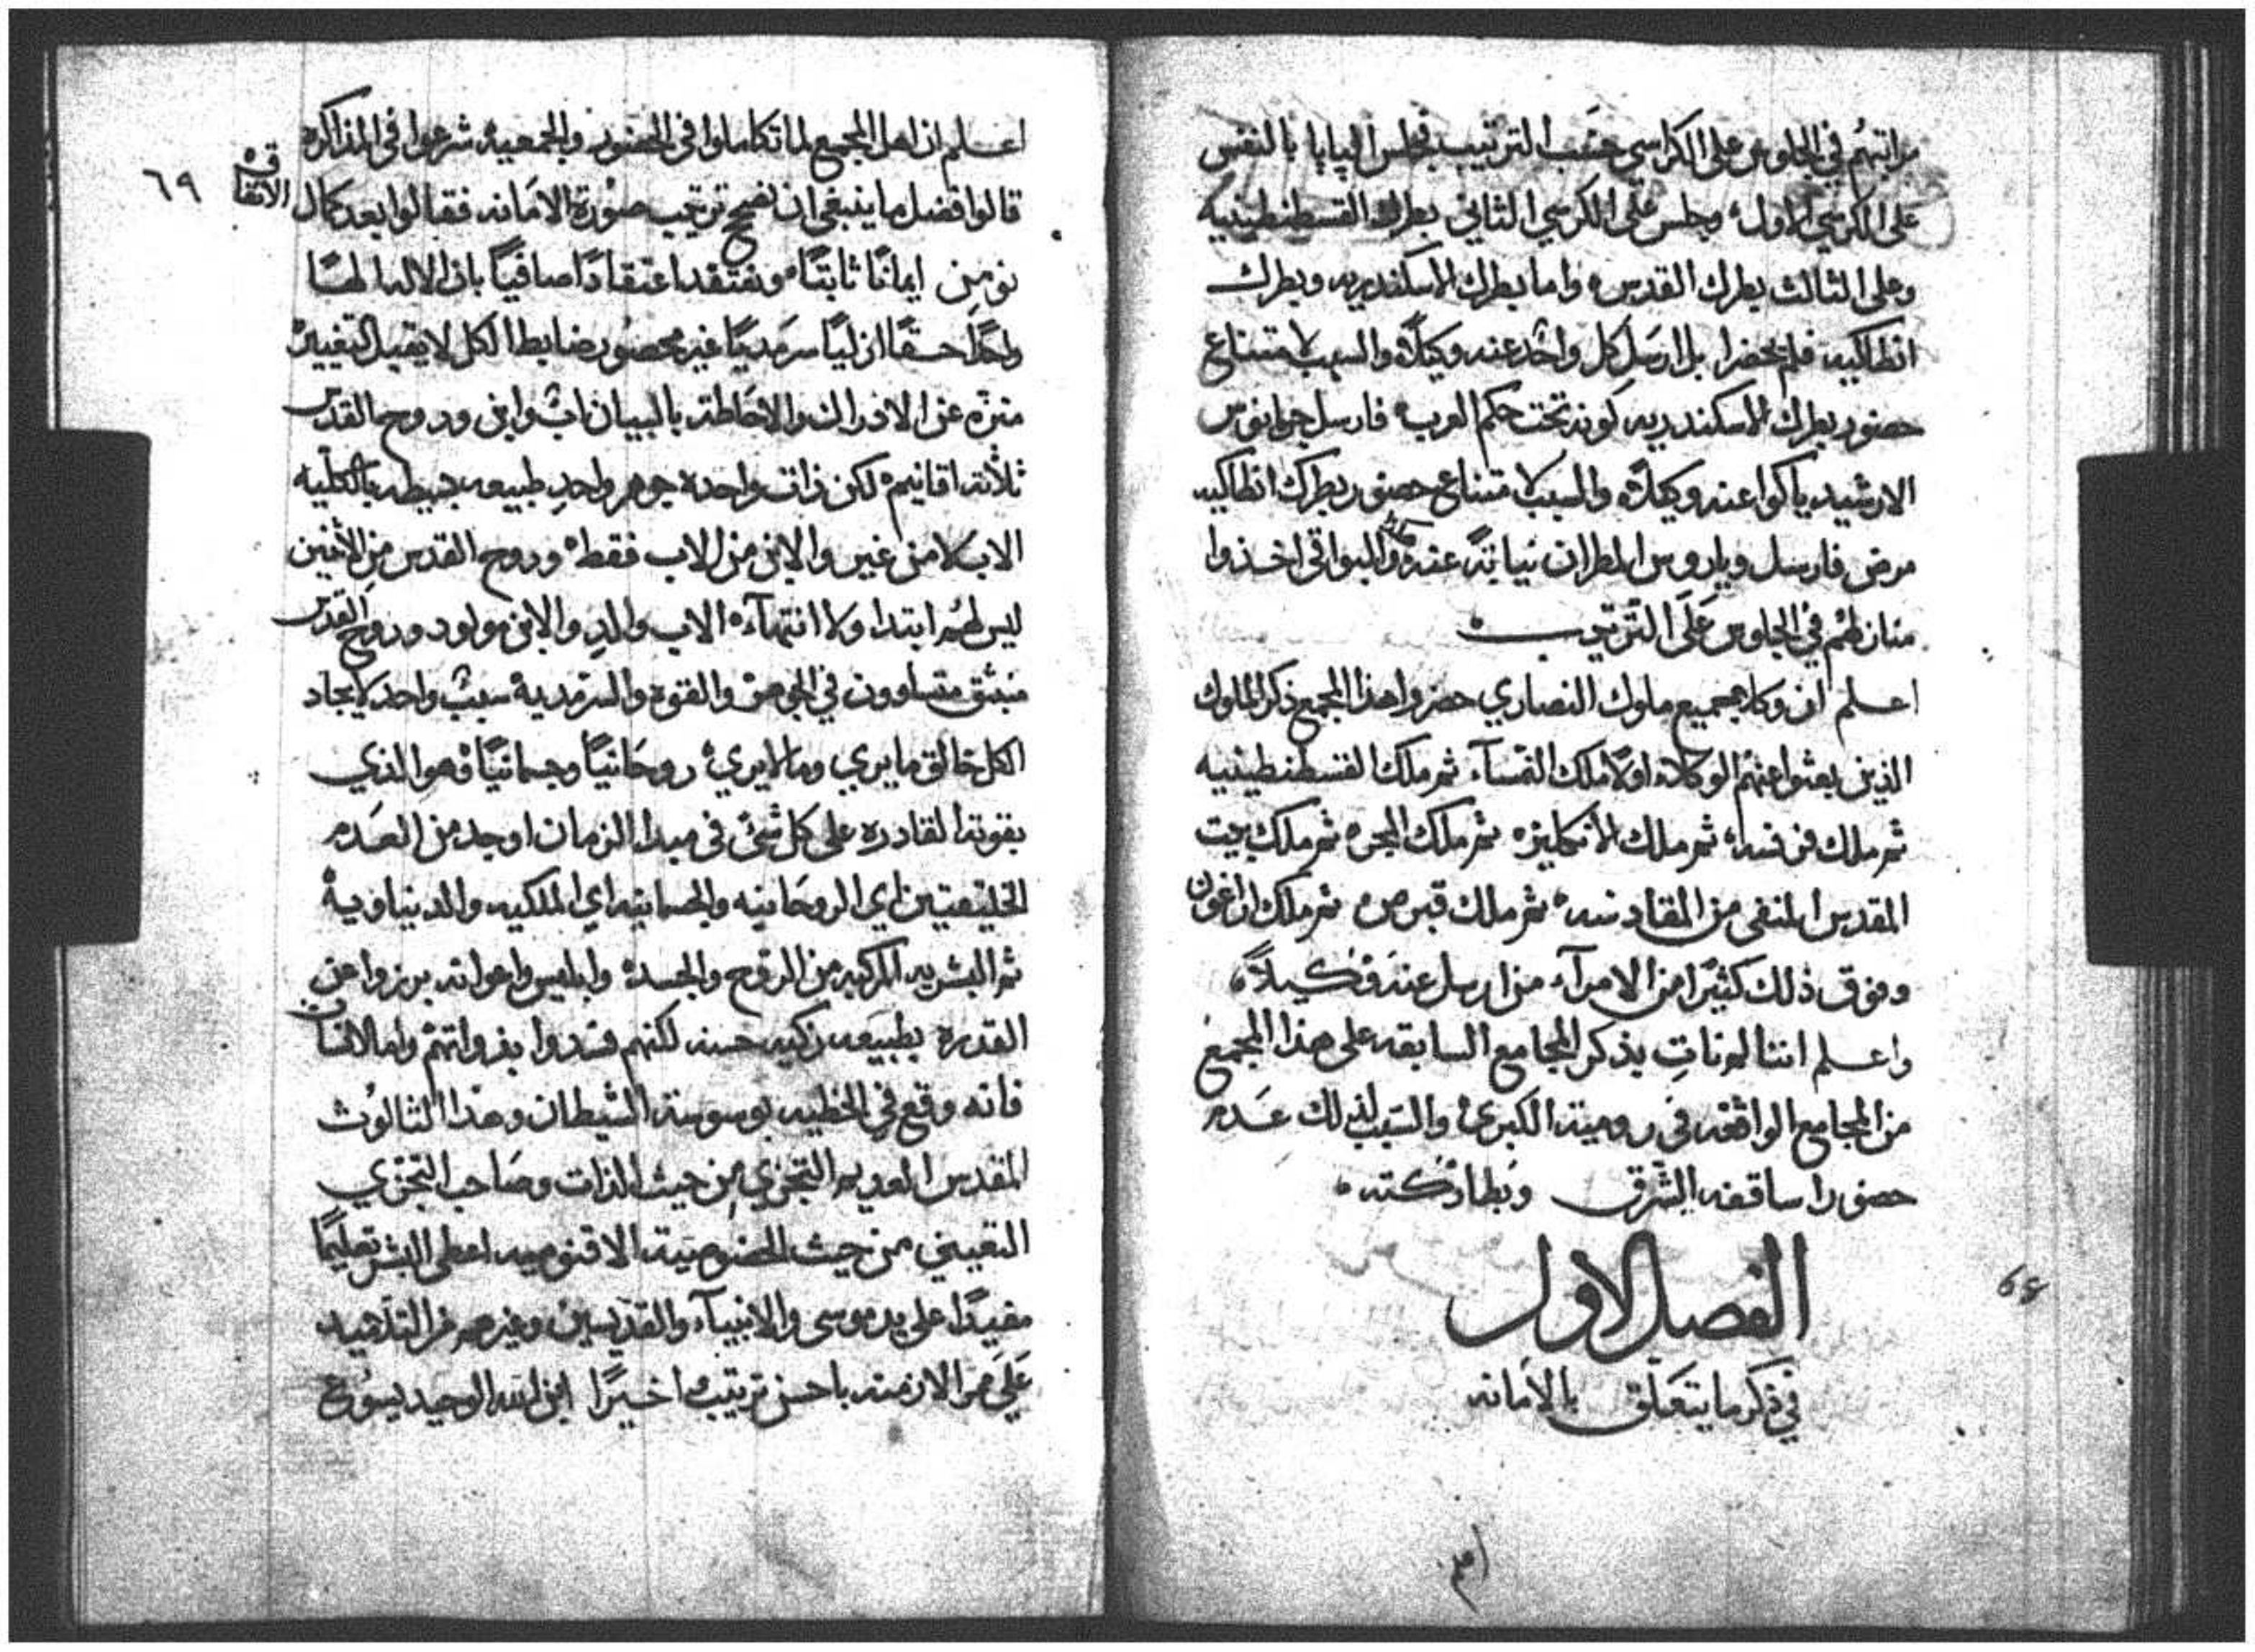 مراتبهُم في الجلوس على الكراسي حسَب الترتيب فجلس الپاپا بالنفس
على الكرسي الاول، وجلس على الكرسي الثاني بطرك القسطنطينيه
وعلى الثالث بطرك القدس، واما بطرك الاسكندريه وبطرك
انطاكيه فلم يحضرا بل ارسَل كل واحد عنه وكيلاً، والسبب لامتناع
حضور بطرك الاسكندريه كونه تحت حكم العرب، فارسل
الارشيدياكوا عنه وكيلاً، والسبب لامتناع حضور بطرك انطاكيه
مرض فارسل المطران نيابةً عنه، والبواقي اخذوا
منازلهُم في الجلوس عَلَى التّرتيب
اعلم ان وكلا جميع ملوك النصاري حضروا هذا المجمع ذكر الملوك
الذين بعثوا عنهُم الوكلاء، اولاً ملك النمسآء ثم ملك القسطنطينيه
ثم ملك فرنسه، ثم ملك الانكليزه ثم ملك المجره ثم ملك بيت
المقدس المنفى من المقادسه، ثم ملك قبرص، ثم ملك اراغون
وفوق ذلك كثيرًا من الامرآء من ارسل عنه وَكيلاً،
واعلم اننا لم ناتِ بذكر المجامع السابقه على هذا المجمع
من المجامع الواقعه في رومية الكبرى، والسَبب لذلك عدم
حضور اساقفه الشرق وبطاركته،
الفصل الاول
في ذكر ما يتعَلق بالامَانه
68
اعلم
٦٩
اعلم ان اهل المجمع لما تكاملوا في الحضور والجمعيه شرعوا في المذاكره
قالوا فضل ما ينبغي ان نضح ترتيب صُورة الامَانه فقالوا بعد كمال الاتفاق
نومن ايمانًا ثابتًا، ونعتقد اعتقادًا صافياً بان الاله الهًا
واحدًا حقًا ازليًا سرمديًا غير محصُور ضابط الكل لا يقبل التغيير
منزّه عن الادراك والاحاطة بالبيان ابُ وابن وروح القدس
ثلاثة اقانيم، لكن ذات واحدة جوهر واحدِ طبيعه بسيطه بالكليه
الاب لا من غير والابن من الاب فقط، وروح القدس من الاثنين
ليس لهُم ابتدا ولا انتهآء، الاب والدِ والابن مولود وروح القدس
منبثق متساوون في الجوهر والقوه والسرمدية سببٌ واحد لايجاد
الكل خالق ما يرى وما لا يرى، روحَانيًا وجسمانيًا، وهو الذي
بقوته القادره على كل شئ في مبدا الزمان اوجد من العدم
الخليقتين اي الروحَانيه والجسمانيه اي الملكيه والدنياوية
ثم البشريه المركبه من الروح والجسد، وابليس واعوانه برزوا من
القدره بطبيعه زكيه حسنه لكنهم فسدوا بذواتهُم واما الانسان
فانه وقع في الخطيه بوسوسة الشيطان وهذا الثالوُث
المقدس العديم التجزي مِن حيث الذات وصَاحب التجزي
التعييني من حيث الخصُوصية الاقنوميه اعطى البشر تعليمًا
مفيدًا على يد موسى والانبيآء والقدّيسين وغيرهم من التلاميد
عَلَى ممر الازمنه باحسن ترتيب، اخيرًا ابن الله الوحيد يسُوع